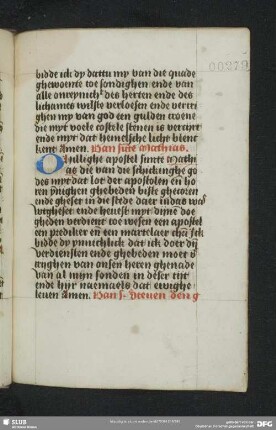 00279
bidde ick dy dattu my van die quade
ghewoente toe sondighen ende van
alle onreynicheit des herten ende des
lichames wilste verloesen ende vercri
ghen my van god een gulden croene
die myt voele costele stenen is verciert
ende myt dat hemelsche licht
kent Amen. Van sūte Mathias.
O hillighe apostel sunte Math
as die van die schickinghe go
des myt dat lot der apostolen
ghebeden biste ghecoren
ende gheset in die stede daer iudas
ende
gheden verdient toe wesen een apostel
een prediker eñ een martelaer
bidde dy ynnichlick dat ick doer dyn
verdiensten ende ghebeden moet v
crighen van onsen heren ghenade
van al myn sonden in deser tijt
ende hyr naemaels dat ewighe
leuen Amen. Van s.
SLUB
DFG